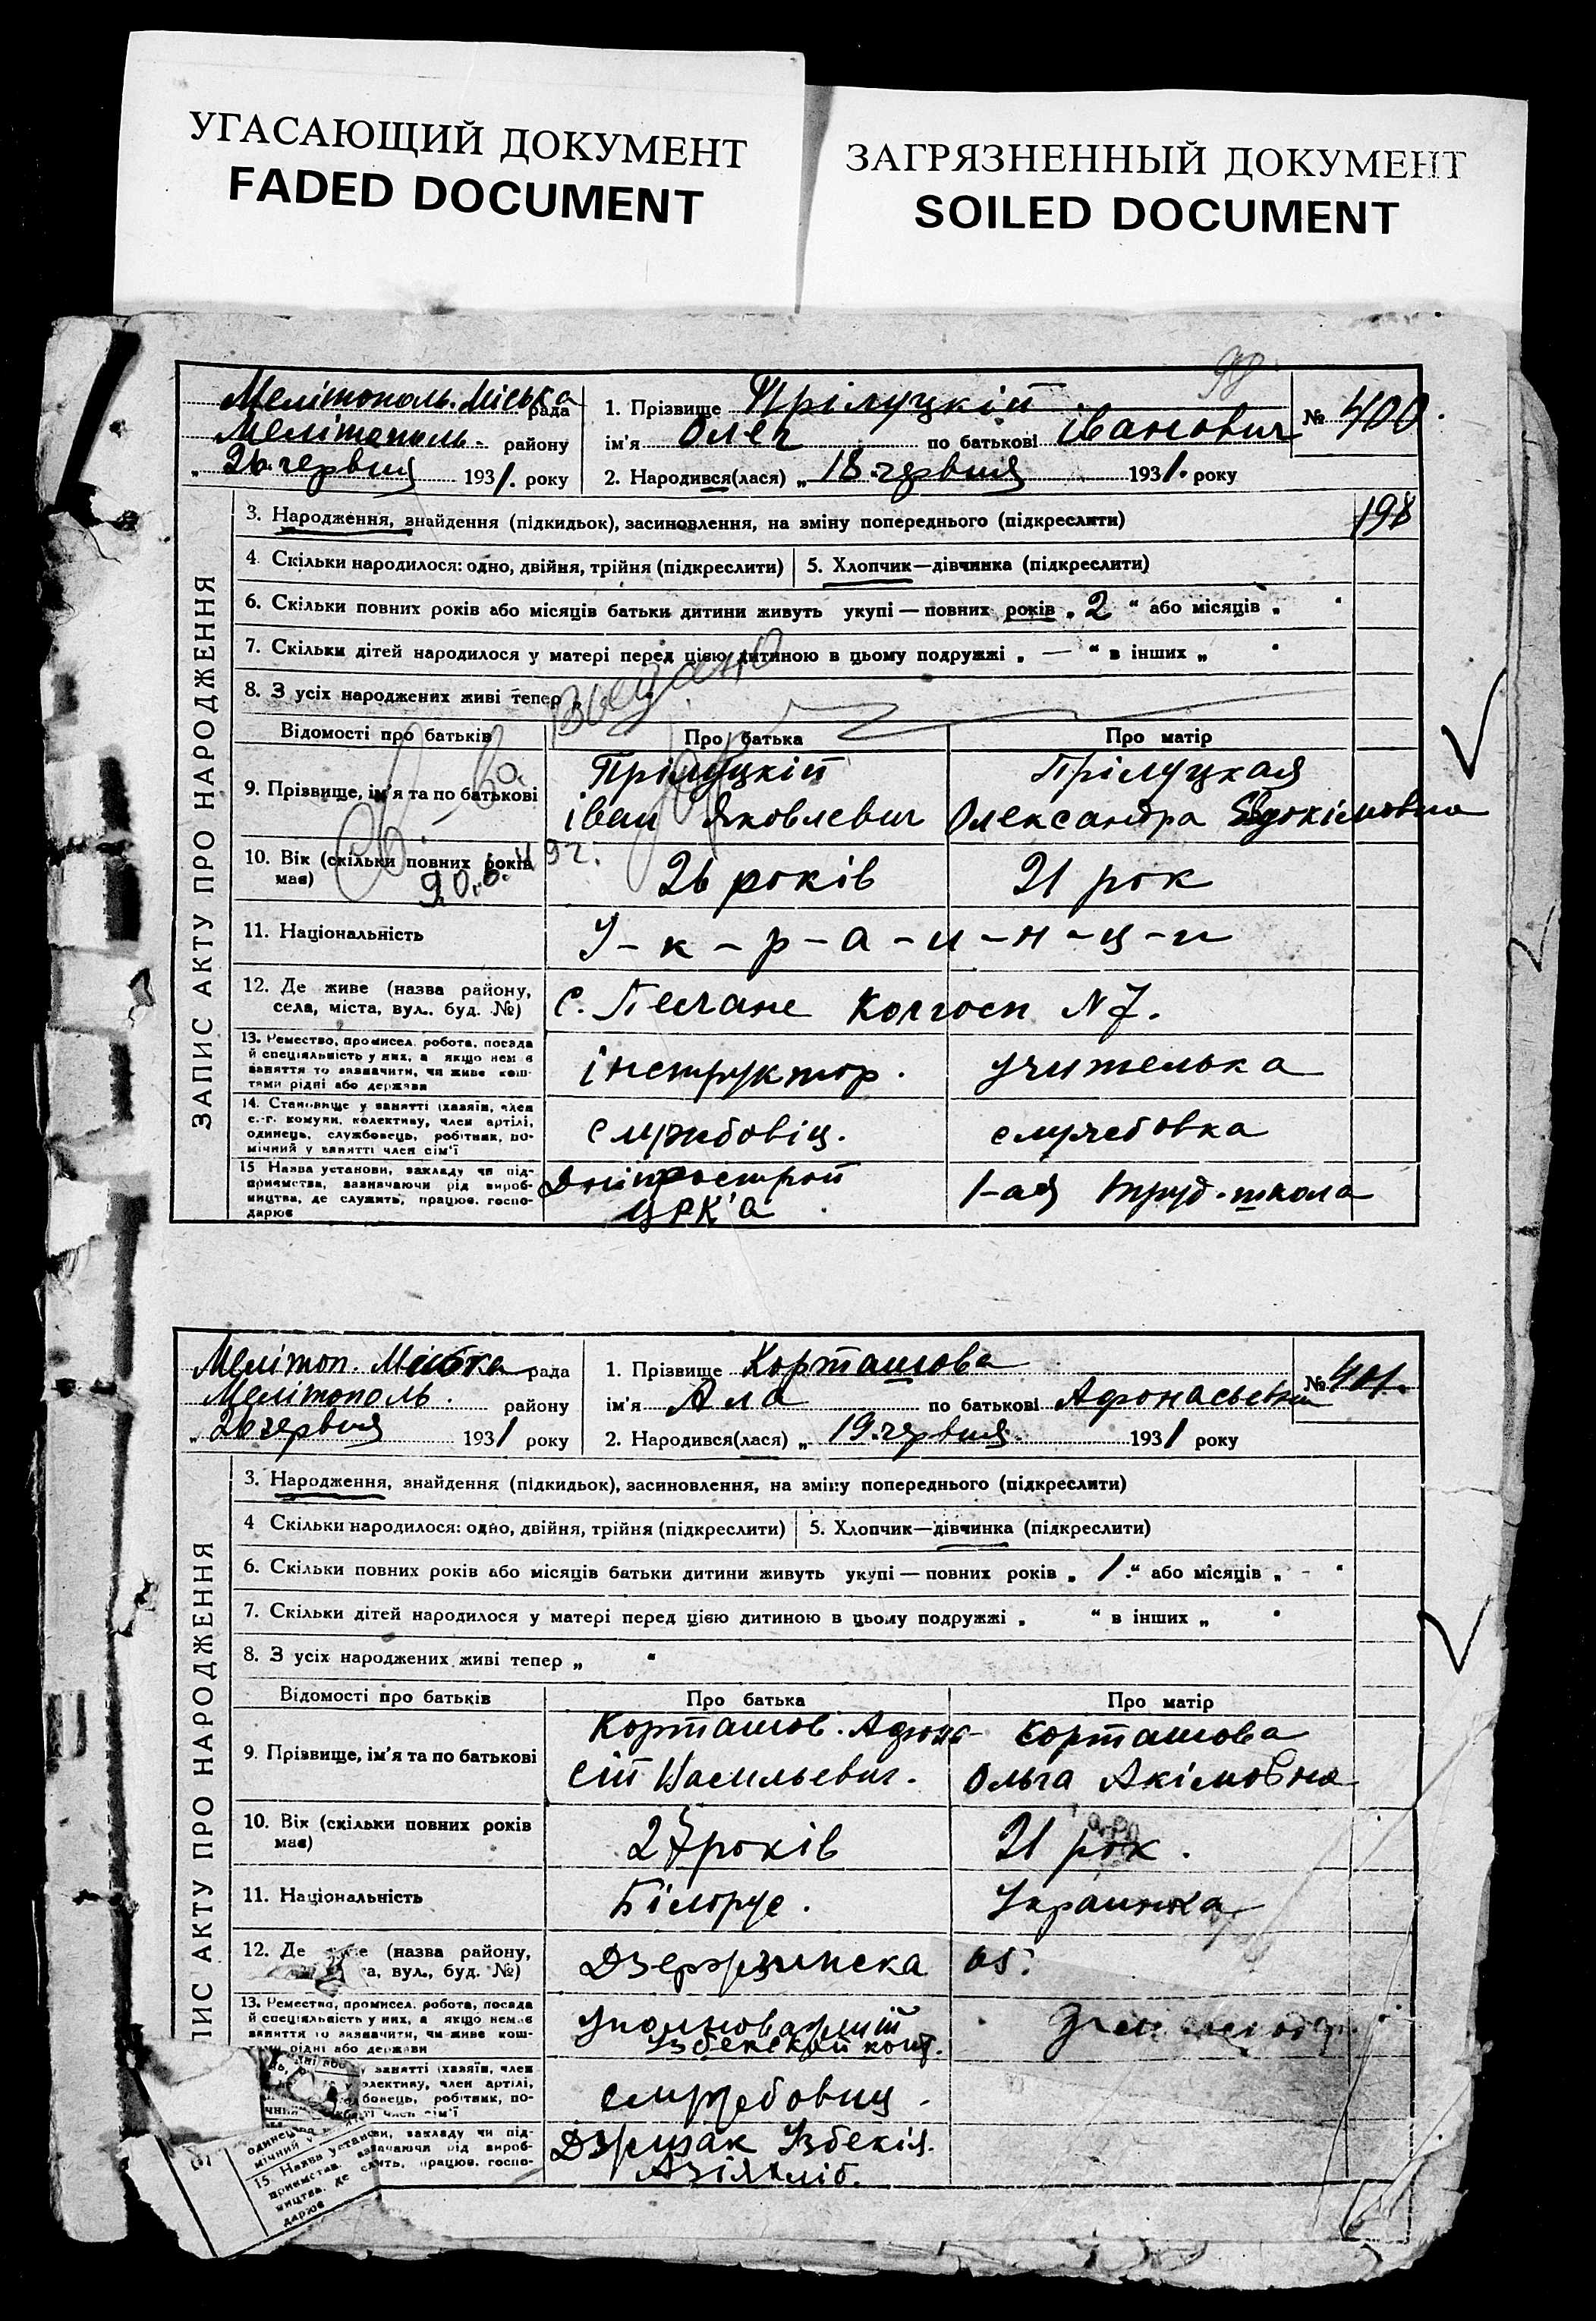 УГАСАЮЩИЙ ДОКУМЕНТ
FADED DOCUMENT
ЗАГРЯЗНЕННЫЙ ДОКУМЕНТ
SOILED DOCUMENT
98
Мелітополь. Міська рада
Мелітополь. району
„ 26 червня 1931. року
1. Прізвище Прілуцкій
ім'я Олег по батькові Іванович
2. Народився(лася) „ 18 червня 1931. року
№ 400
ЗАПИС АКТУ ПРО НАРОДЖЕННЯ
3. Народження, знайдення (підкидьок), засиновлення, на зміну попереднього (підкреслити)
198
4 Скільки народилося: одно, двійня, трійня (підкреслити) 5. Хлопчик—дівчинка (підкреслити)
6. Скільки повних років або місяців батьки дитини живуть укупі — повних років „ 2 “ або місяців „ “
7. Скільки дітей народилося у матері перед цією дитиною в цьому подружжі „ — “ в інших „ “
8. З усіх народжених живі тепер „
Відомості про батьків Про батька Про матір
9. Прізвище, ім'я та по батькові
Прілуцкій
Іван Яковлевич
Прілуцкая
Олександра Евдокімовна
10. Вік (скільки повних років має)
26 років 21 рок
11. Національність
У-к-р-а-и-н-ц-и
12. Де живе (назва району,
села, міста, вул., буд. №)
с. Песчане Колгосп N 7.
13. Ремество, промисел, робота, посада
й спеціяльність у них, а якщо нема
заняття то зазначити, чи живе кош-
тами рідні або держави
інструктор. учителька
14. Становище у занятті (хазяїн, член
с.-г. комуни, колективу, член артілі,
одинець, службовець, робітник, по-
мічний у занятті член сім'ї
службовіц. службовка
15 Назва установи, закладу чи під-
приємства, зазначаючи рід вироб-
ництва, де служить, працює, госпо-
дарює
Дніпрострой
ЦРК'а
1-ая труд. школа
Мелітоп. Міська рада
Мелітополь. району
„ 26 червня 1931 року
1. Прізвище Корташова
ім'я Ала по батькові Афонасьевна
2. Народився(лася) „ 19. червня 1931 року
№ 401.
ЗАПИС АКТУ ПРО НАРОДЖЕННЯ
3. Народження, знайдення (підкидьок), засиновлення, на зміну попереднього (підкреслити)
4 Скільки народилося: одно, двійня, трійня (підкреслити) 5. Хлопчик—дівчинка (підкреслити)
6. Скільки повних років або місяців батьки дитини живуть укупі — повних років „ 1 “ або місяців „ - “
7. Скільки дітей народилося у матері перед цією дитиною в цьому подружжі „ “ в інших „ “
8. З усіх народжених живі тепер „ “
Відомості про батьків Про батька Про матір
9. Прізвище, ім'я та по батькові
Корташов. Афона-
сій Васильевич.
Корташова
Ольга Акімовна
10. Вік (скільки повних років має)
27 років 21 рок.
11. Національність
Білорус. Украинка
12. Де (назва району,
вул., буд. №)
Дзержинска 05.
13. Ремество, промисел, робота, посада
й спеціяльність у них, а якщо нема
заняття то зазначити, чи живе кош-
рідні або держави
Узбекской
занятті (хазяїн, член
член артілі,
робітник, по-
член сім'ї
службовиц.
закладу чи під-
рід вироб-
працює, госпо-
Узбекія.
15. Назва установи
ництва, де
дарює